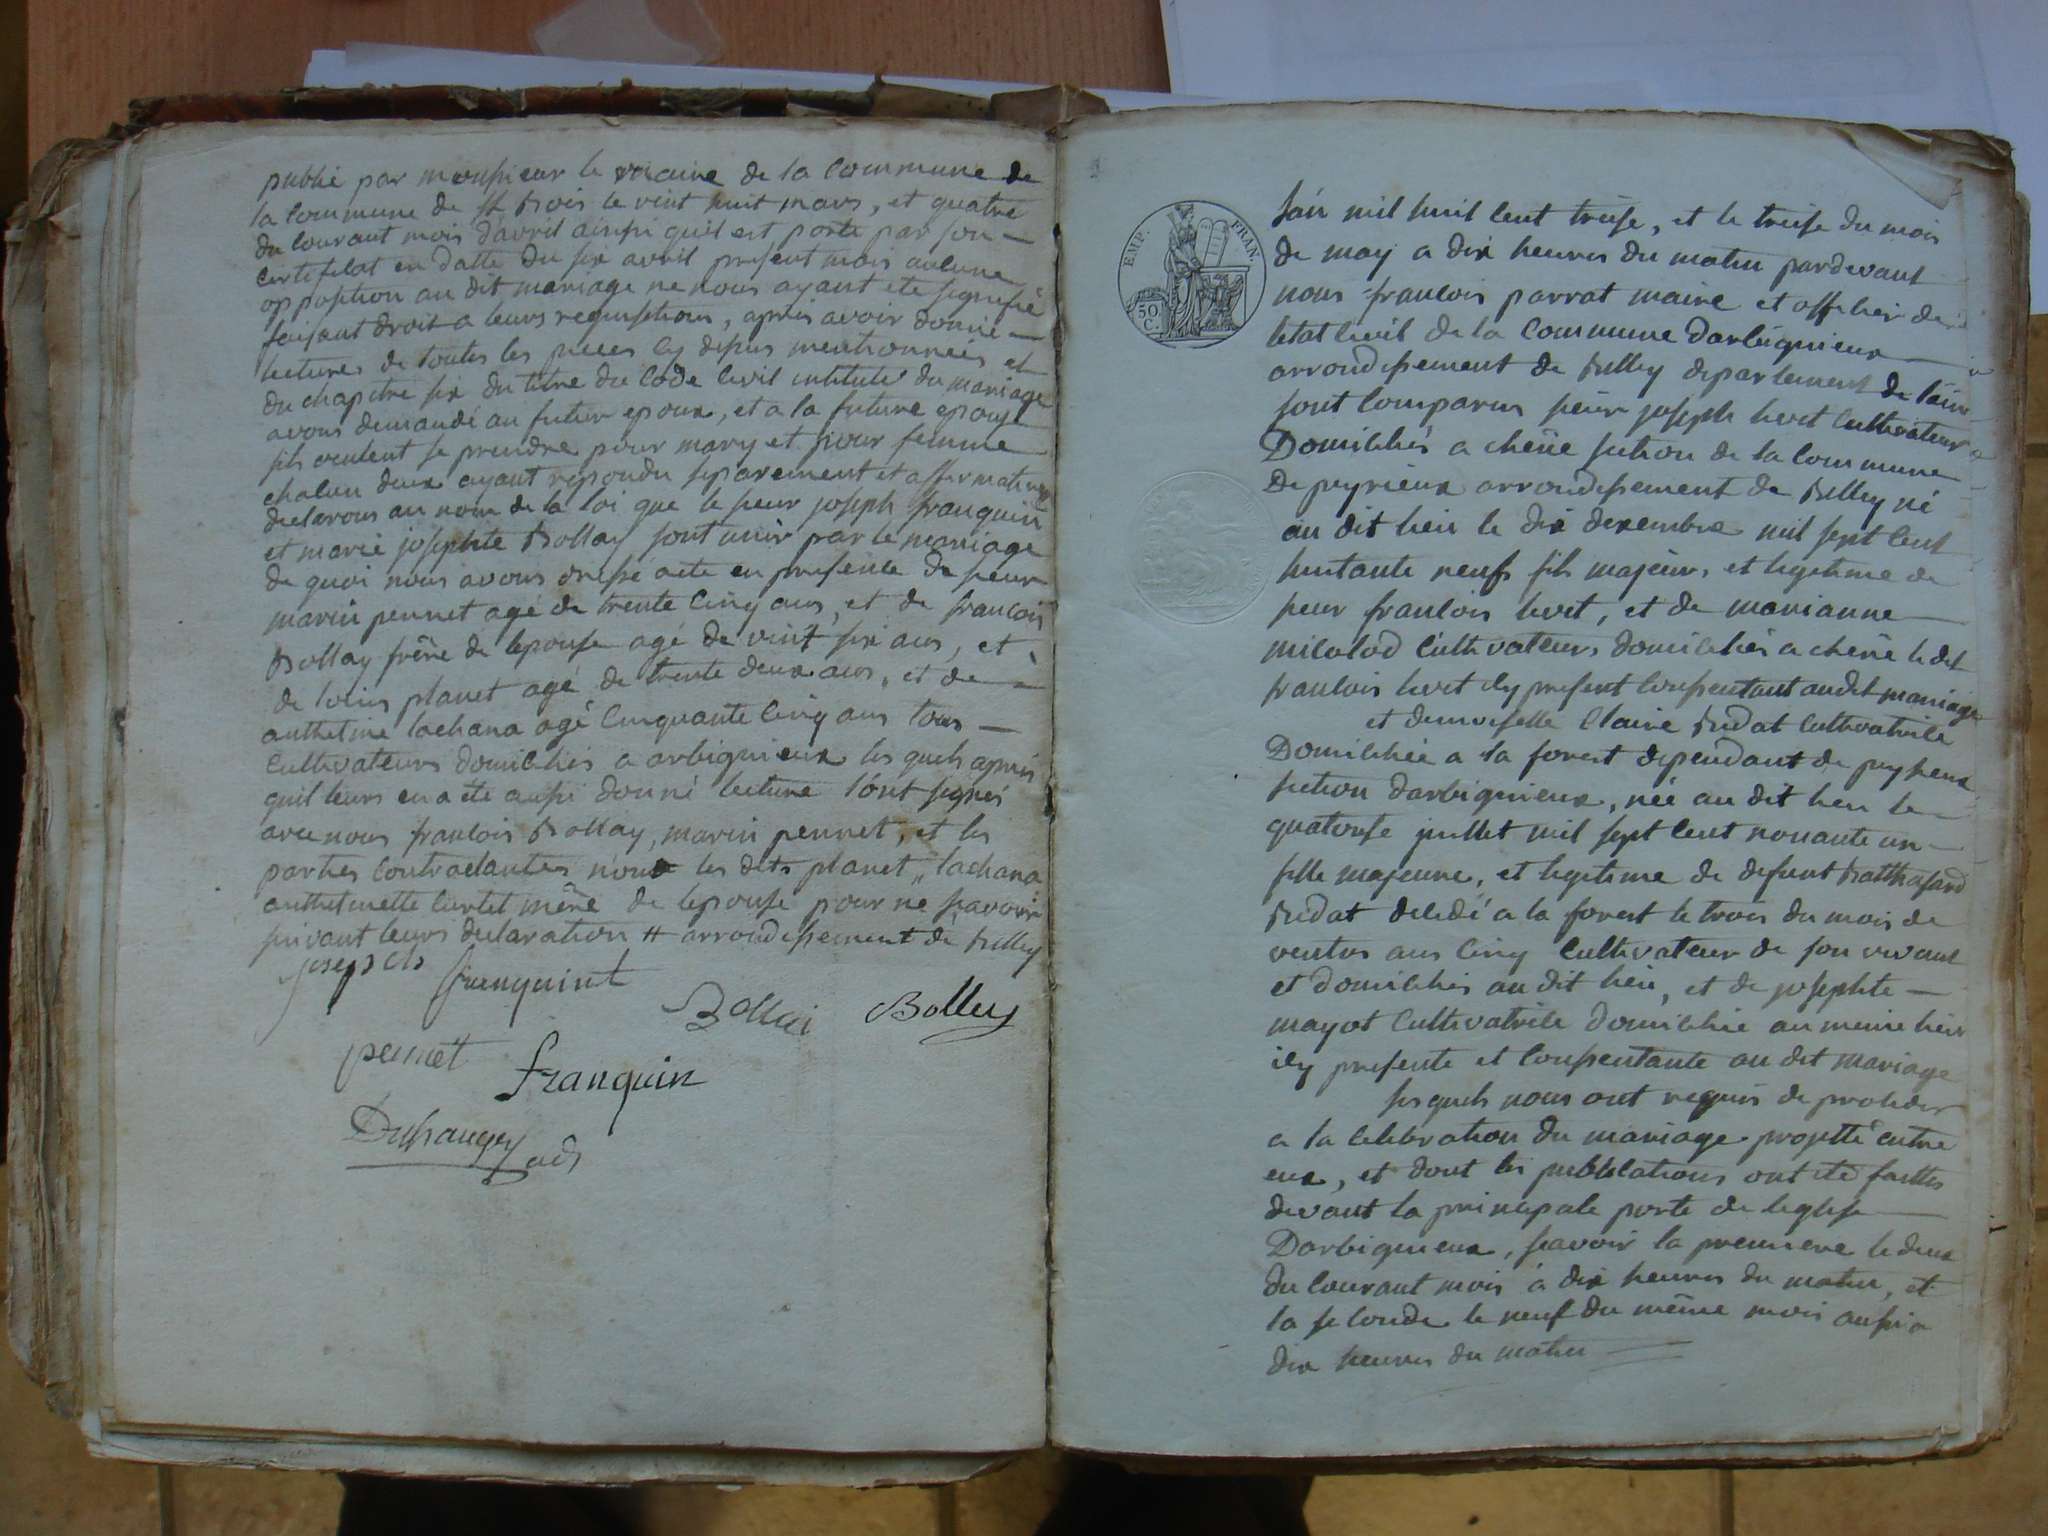 publié par monsieur le maire de la commune de
la commune de St Bois le vint huit mars, et quatre
du courant mois davril ainsi quil est porté par son
certificat en datte du six avril present mois aucune
opposition au dit mariage ne nous ayant ete signifié
faisant droit a leurs requisitions, apres avoir donné
lecture de toutes les pieces cy desus mentionnées et
du chapitre six du titre du Code Civil intitulé du mariage
avons demandé au futur epoux, et a la future epouse
sils veulent se prendre pour mary et pour femme
chacun deux ayant repondu separement et affirmativem
declarons au nom de la loi que le sieur joseph franquin
et marie josephte Bollay sont unir par le mariage
de quoi nous avons dresé acte en presence de sieur
marin pennet agé de trente cinq ans, et de francois
Bollay frêre de lepouse agé de vint six ans, et
de louis planet agé de trente deux ans, et de
anthelme lachana agé cinquante cinq ans tous
cultivateurs domiciliés a arbignieux les quels apres
quil leurs en a ete ausi donné lecture lont signés
avec nous francois Bollay, marin pennet, et les
parties contractantes non les dits planet, lachana
anthelmette mêre de lepouse pour ne scavoir
suivant leurs declaration # arrondisement de Belley
joseph franquint
Bollai Bolley
pennet franquin
adj
EMP. FRAN.
50 C.
lan mil huit cent treise, et le treise du mois
de may a dix heures du matin pardevant
nous francois parrat maire et officier de
letat civil de la Commune Darbignieux
arrondisement de Belley departement de lain
sont comparus sieur joseph livet cultivateur
Domicilié a chêne section de la commune
De peyrieux arrondisement de Belley né
au dit lieu le dix dexembre mil sept cent
huitante neuf fils majeurs et legitime de
sieur francois livet, et de marianne
milolod cultivateurs domiciliés a chêne le dit
francois livet icy present consentant audit mariage
et demoiselle Claire Budat cultivatrice
Domiciliée a la forest dependant de peysieux
section darbignieux, née au dit lieu le
quatorse juillet mil sept cent nonante un
fille majeure, et legitime de defunt Balthasard
Budat décédé a la forest le trois du mois de
ventos ans cinq cultivateur de son vivant
et domiciliés au dit lieu, et de josephte
mayot cultivatrice domiciliée au meme lieu
icy presente et consentante au dit mariage
les quels nous ont requis de proceder
a la celebration du mariage projetté entre
eux, et dont les publications ont ete faittes
devant la principale porte de leglise
Darbignieux, scavoir la premiere le deux
du courant mois a dix heures du matin, et
la seconde le neuf du même mois ausi a
dix heures du matin